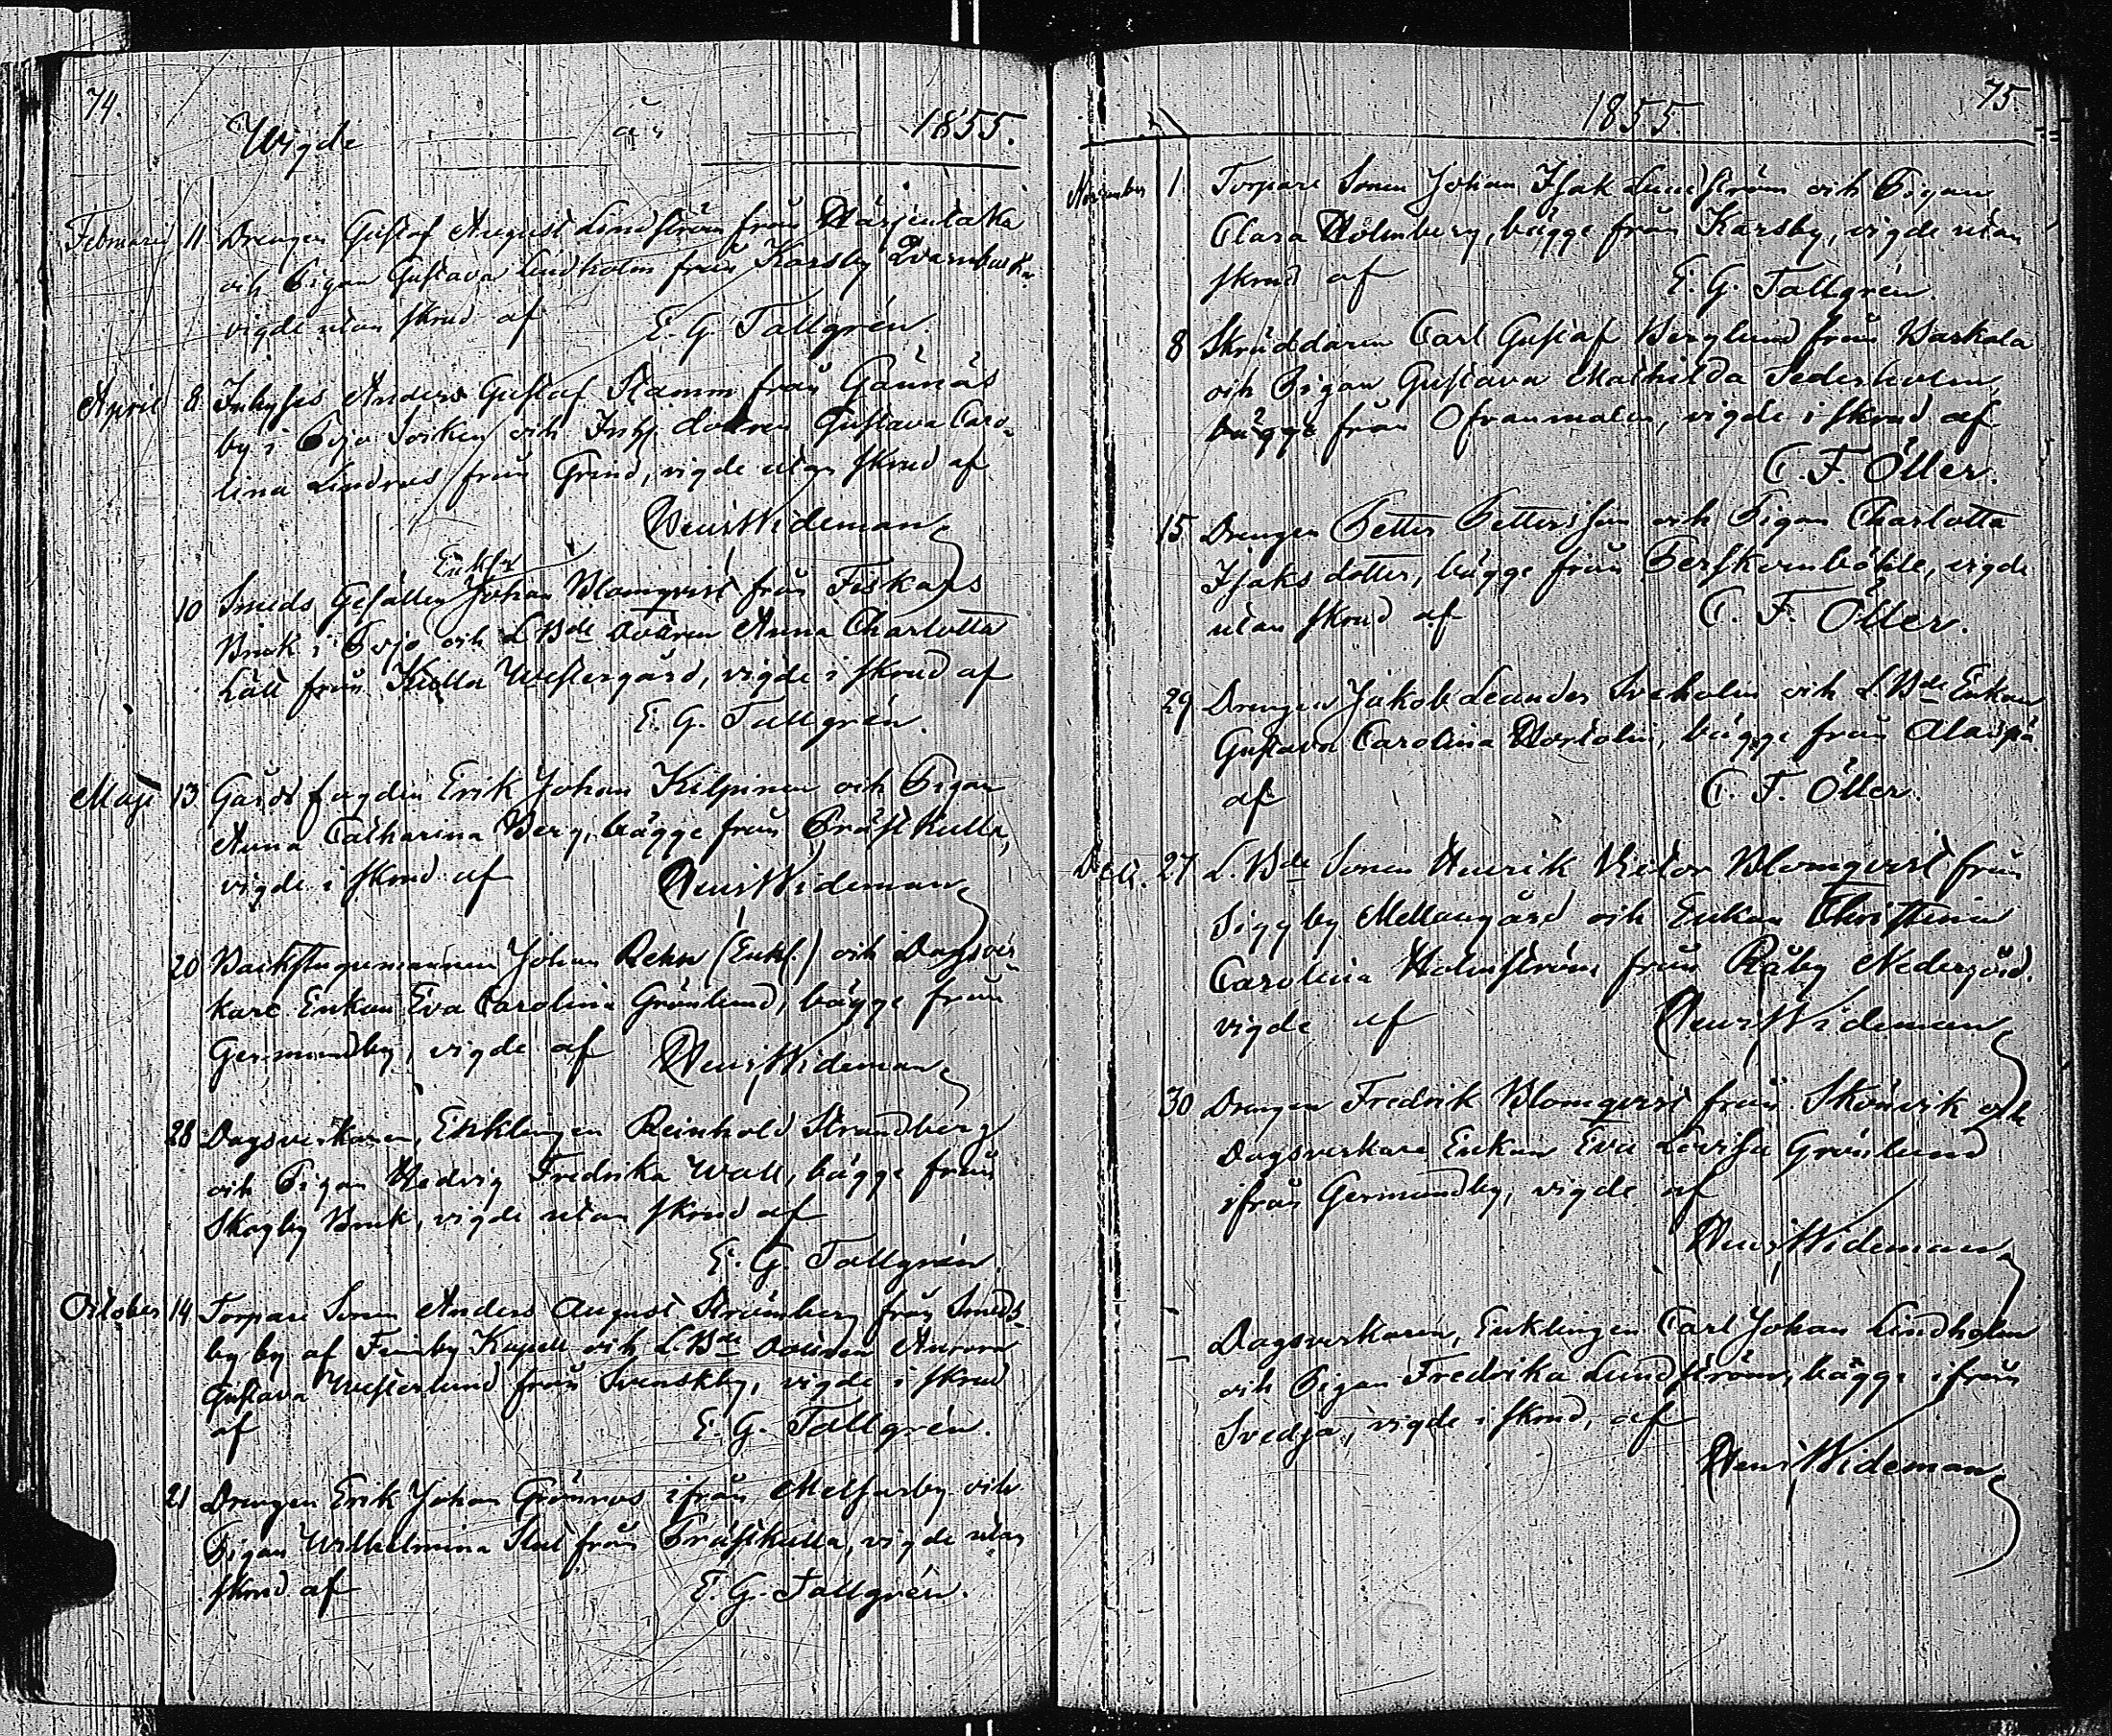 74.
Wigde år 1855.
Februarii 11. Drengen Gustaf August Lindström från Härjentaka
och Pigan Gustava Lindholm från Karsby Qvarnbacka
vigde utan skrud af E. G. Tallgrén.
April 8. Inhyses Anders Gustaf Stamm från Gännäs
by i Pojo Socken och Inhs dottren Gustava Caro-
lina Lindroos från Grind, vigde utan skrud af
Henr Wideman
Enkl
10 Smeds Gesällen Johan Blomqvist från Fiskars
Bruk i Pojo och L. Bde dottren Anna Charlotta
Lätt från Kulla Westergård, vigde i skrud af
E. G. Tallgrén.
Maji 13 Gårds fogden Erik Johan Kilpinen och Pigan
Anna Catharina Berg, bägge från Prästkulla,
vigde i skrud af Henr Wideman
20 Backstugumannen Johan Rehn (Enkl.) och Dagsver-
kare Enkan Eva Carolina Grönlund, bägge från
Germundby, vigde af Henr Wideman
28 Dagsverkaren, Enklingen Reinhold Strandberg
och Pigan Hedvig Fredrika Wall, bägge från
Skogby Bruk, vigde utan skrud af
E. G. Tallgrén.
October 14 Torpare Sonen Anders August Strömberg från Smeds-
by by af Finby Kapell och L. Bde Dottren Aurora
Gustava Westerlund från Svenskby, vigde i skrud
af E. G. Tallgrén.
21 Drengen Erik Johan Grönroos ifrån Melsarby och
Pigan Wilhelmina Stal från Prästkulla, vigde utan
skrud af E. G. Tallgrén.
75.
1855.
November 1 Torpare Sonen Johan Isak Lundström och Pigan
Clara Holmberg, bägge från Karsby, vigde utan
skrud af E. G. Tallgrén.
8 Skräddaren Carl Gustaf Berglund från Baskala
och Pigan Gustava Mathilda Sederholm,
bägge från Ofvanmalm, vigde i skrud af
C. F. Öller.
15 Drengen Petter Pettersson och Pigan Charlotta
Isaks dotter, bägge från Perskomböhle, vigde
utan skrud af C. F. Öller.
29 Drengen Jakob Leander Sveholm och L. Bde Enkan
Gustava Carolina Hortolin, bägge från Alaispä
af C. F. Öller.
Dec. 27 L. Bde Sonen Henrik Victor Blomqvist från
Siggby Mellangård och Enkan Christina
Carolina Holmström från Råby Nedergård.
vigde af Henr Wideman
30 Drengen Fredrik Blomqvist från Skönvik och
Dagsverkare Enkan Eva Lovisa Grönlund
ifrån Germundby, vigde af
Henr Wideman
Dagsverkaren, Enklingen Carl Johan Lindholm
och Pigan Fredrika Lundström, bägge ifrån
Svedja, vigde i skrud, af
Henr Wideman